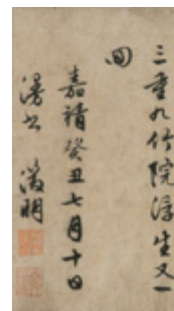 三重九竹院浮生又一
回
嘉靖癸丑七月十日
漫書 徵明